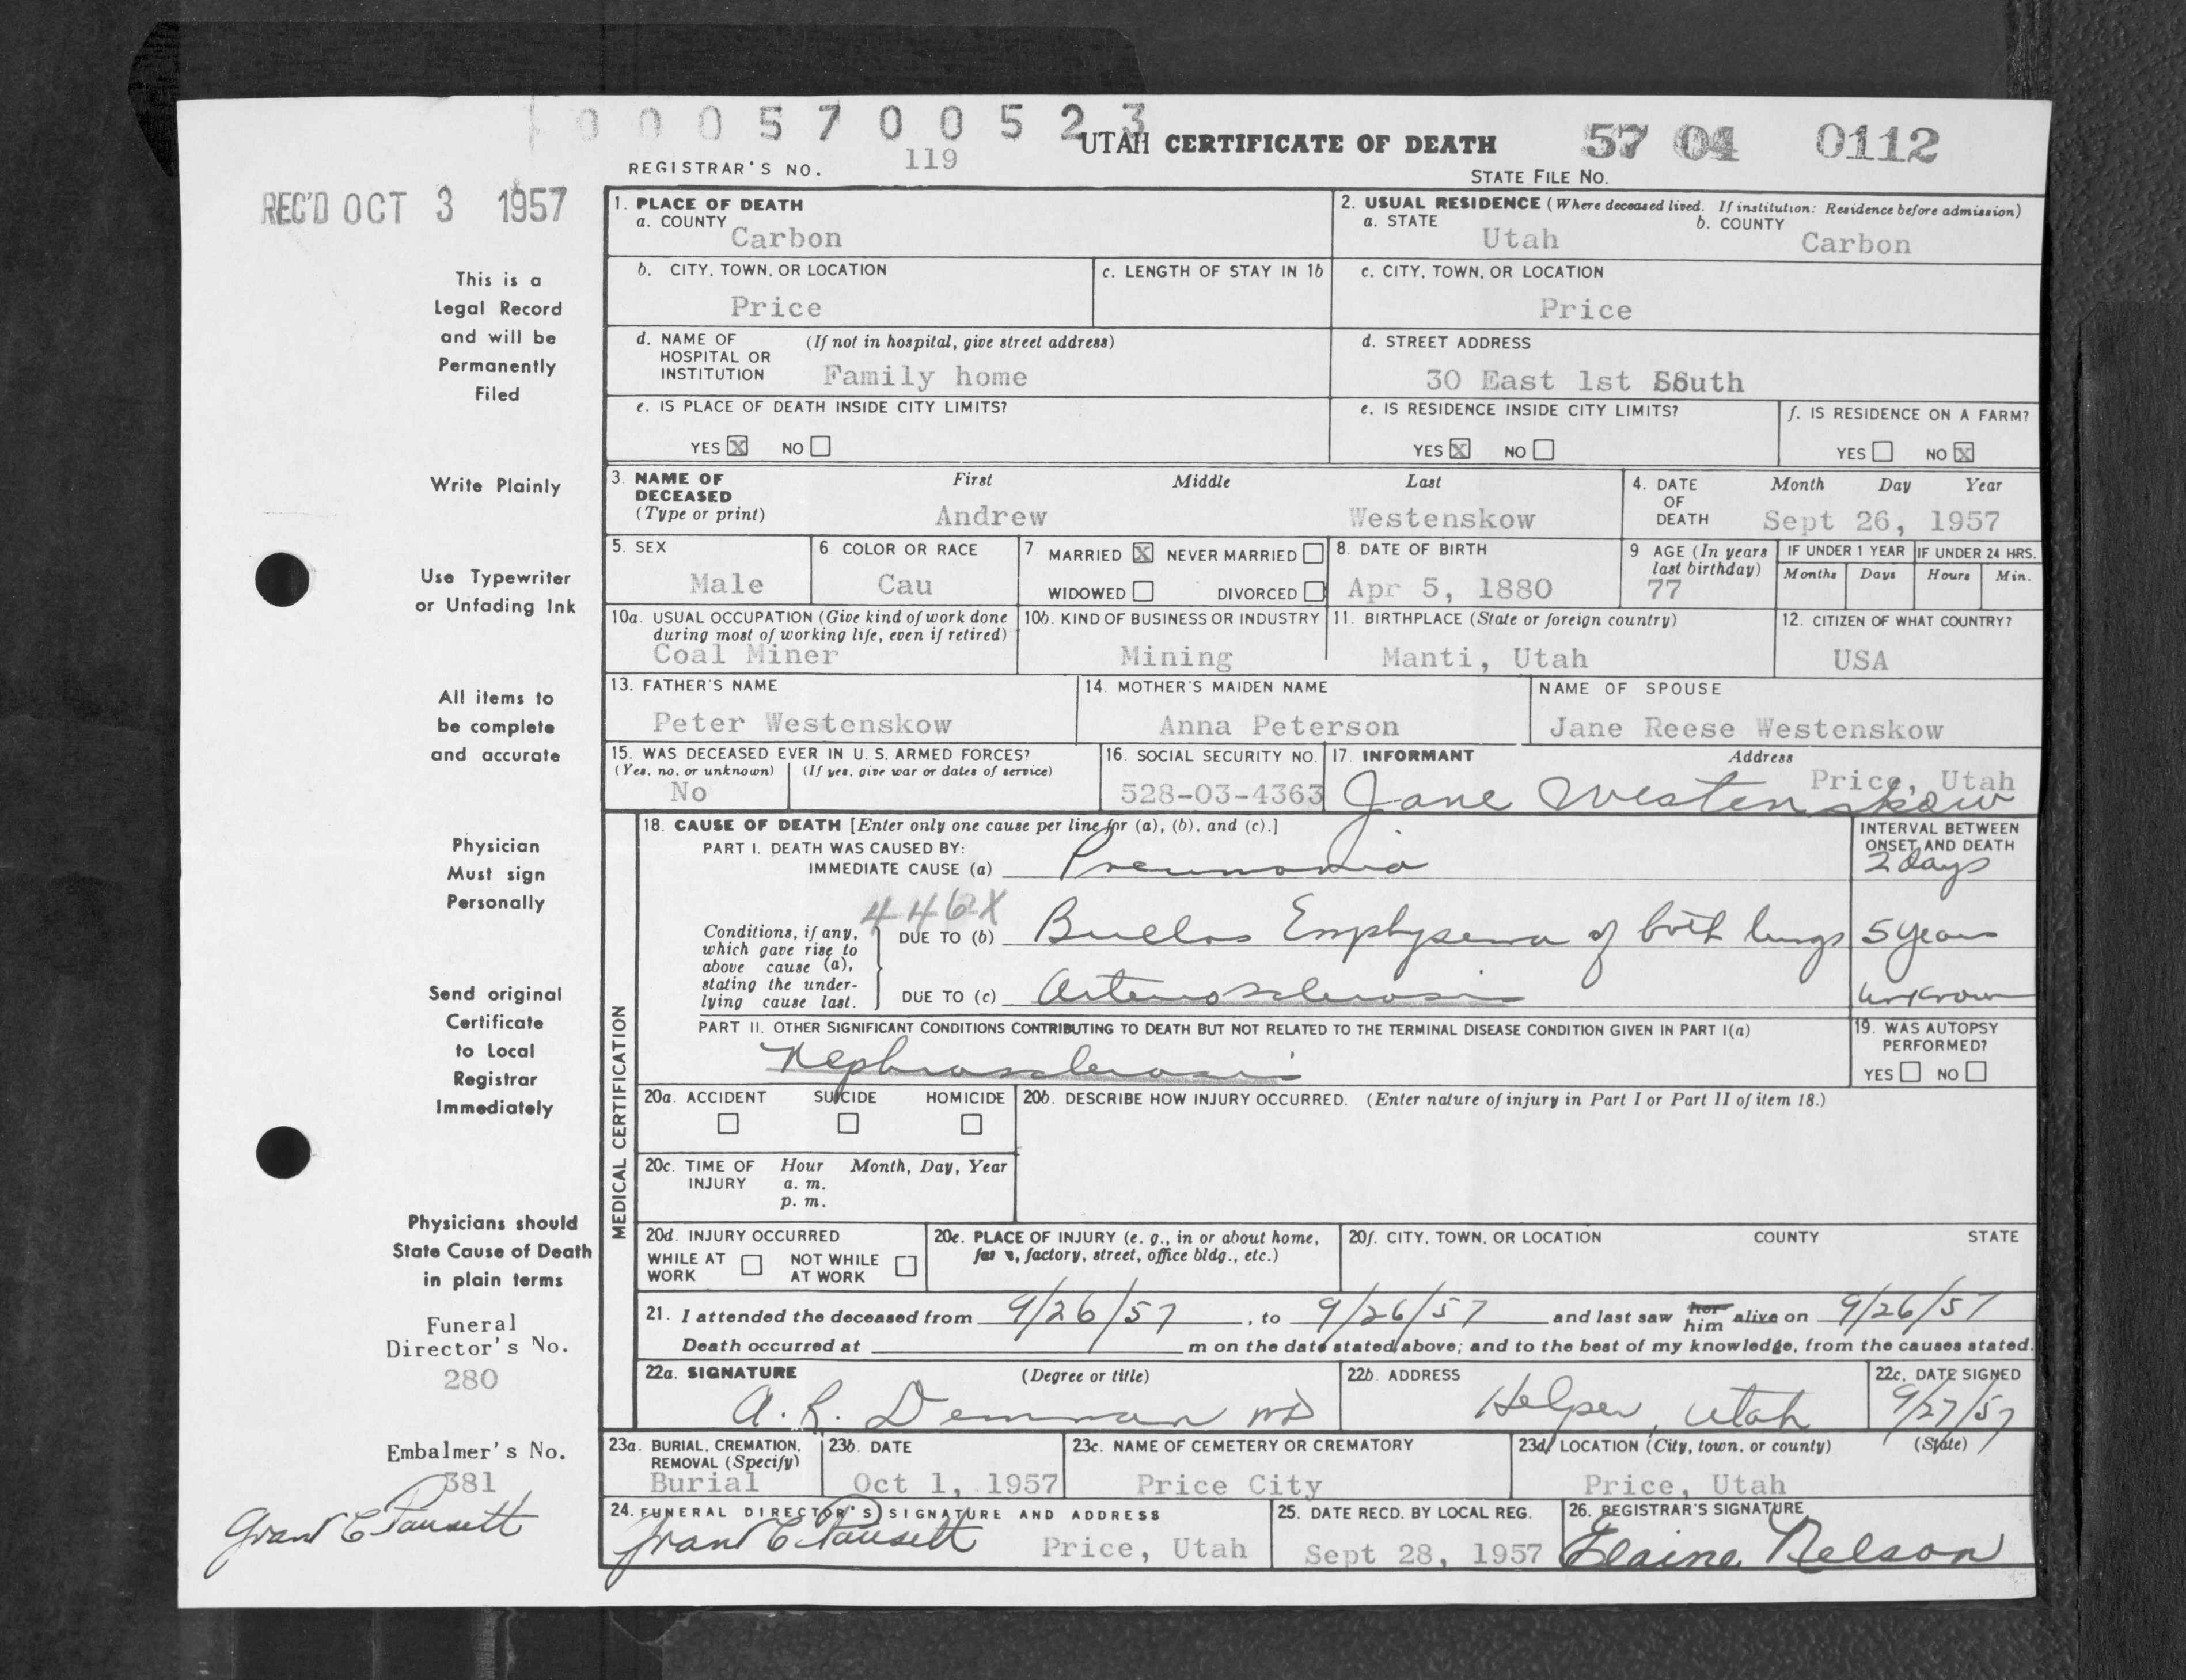 0005700523
UTAH CERTIFICATE OF DEATH
57 04 0112
REGISTRAR'S NO. 119
STATE FILE NO.
REC'D OCT 3 1957
This is a
Legal Record
and will be
Permanently
Filed
Write Plainly
Use Typewriter
or Unfading Ink
All items to
be complete
and accurate
Physician
Must sign
Personally
Send original
Certificate
to Local
Registrar
Immediately
Physicians should
State Cause of Death
in plain terms
Funeral
Director's No.
280
Embalmer's No.
381
Grant C Fausett
1. PLACE OF DEATH
a. COUNTY
Carbon
2. USUAL RESIDENCE (Where deceased lived. If institution: Residence before admission)
a. STATE Utah b. COUNTY Carbon
b. CITY, TOWN, OR LOCATION
Price
c. LENGTH OF STAY IN 1b
c. CITY, TOWN, OR LOCATION
Price
d. NAME OF (If not in hospital, give street address)
HOSPITAL OR
INSTITUTION Family home
d. STREET ADDRESS
30 East 1st South
e. IS PLACE OF DEATH INSIDE CITY LIMITS?
YES X NO
e. IS RESIDENCE INSIDE CITY LIMITS?
YES X NO
f. IS RESIDENCE ON A FARM?
YES NO X
3. NAME OF DECEASED First Middle Last
(Type or print) Andrew Westenskow
4. DATE OF DEATH Month Day Year
Sept 26, 1957
5. SEX
Male
6. COLOR OR RACE
Cau
7. MARRIED X NEVER MARRIED
WIDOWED DIVORCED
8. DATE OF BIRTH
Apr 5, 1880
9 AGE (In years last birthday)
77
IF UNDER 1 YEAR IF UNDER 24 HRS.
Months Days Hours Min.
10a. USUAL OCCUPATION (Give kind of work done
during most of working life, even if retired)
Coal Miner
10b. KIND OF BUSINESS OR INDUSTRY
Mining
11. BIRTHPLACE (State or foreign country)
Manti, Utah
12. CITIZEN OF WHAT COUNTRY?
USA
13. FATHER'S NAME
Peter Westenskow
14. MOTHER'S MAIDEN NAME
Anna Peterson
NAME OF SPOUSE
Jane Reese Westenskow
15. WAS DECEASED EVER IN U. S. ARMED FORCES?
(Yes, no, or unknown) (If yes, give war or dates of service)
No
16. SOCIAL SECURITY NO.
528-03-4363
17. INFORMANT Address
Price, Utah
Jane Westenskow
MEDICAL CERTIFICATION
18. CAUSE OF DEATH [Enter only one cause per line for (a), (b), and (c).]
PART I. DEATH WAS CAUSED BY:
IMMEDIATE CAUSE (a) Pneumonia
INTERVAL BETWEEN
ONSET AND DEATH
2 days
446X
Conditions, if any,
which gave rise to
above cause (a),
stating the under-
lying cause last.
DUE TO (b) Bullos Emphysema of both lungs 5 years
DUE TO (c) Arteriosclerosis unknown
PART II. OTHER SIGNIFICANT CONDITIONS CONTRIBUTING TO DEATH BUT NOT RELATED TO THE TERMINAL DISEASE CONDITION GIVEN IN PART I(a)
Nephrosclerosis
19. WAS AUTOPSY
PERFORMED?
YES NO
20a. ACCIDENT SUICIDE HOMICIDE
20b. DESCRIBE HOW INJURY OCCURRED. (Enter nature of injury in Part I or Part II of item 18.)
20c. TIME OF INJURY Hour Month, Day, Year
a. m.
p. m.
20d. INJURY OCCURRED
WHILE AT WORK NOT WHILE AT WORK
20e. PLACE OF INJURY (e. g., in or about home,
factory, street, office bldg., etc.)
20f. CITY, TOWN, OR LOCATION COUNTY STATE
21. I attended the deceased from 9/26/57, to 9/26/57 and last saw her him alive on 9/26/57
Death occurred at m on the date stated above; and to the best of my knowledge, from the causes stated.
22a. SIGNATURE (Degree or title)
A. R. Demman MD
22b. ADDRESS
Helper, Utah
22c. DATE SIGNED
9/27/57
23a. BURIAL, CREMATION,
REMOVAL (Specify)
Burial
23b. DATE
Oct 1, 1957
23c. NAME OF CEMETERY OR CREMATORY
Price City
23d. LOCATION (City, town, or county) (State)
Price, Utah
24. FUNERAL DIRECTOR'S SIGNATURE AND ADDRESS
Grant C Fausett Price, Utah
25. DATE RECD. BY LOCAL REG.
Sept 28, 1957
26. REGISTRAR'S SIGNATURE
Elaine Nelson